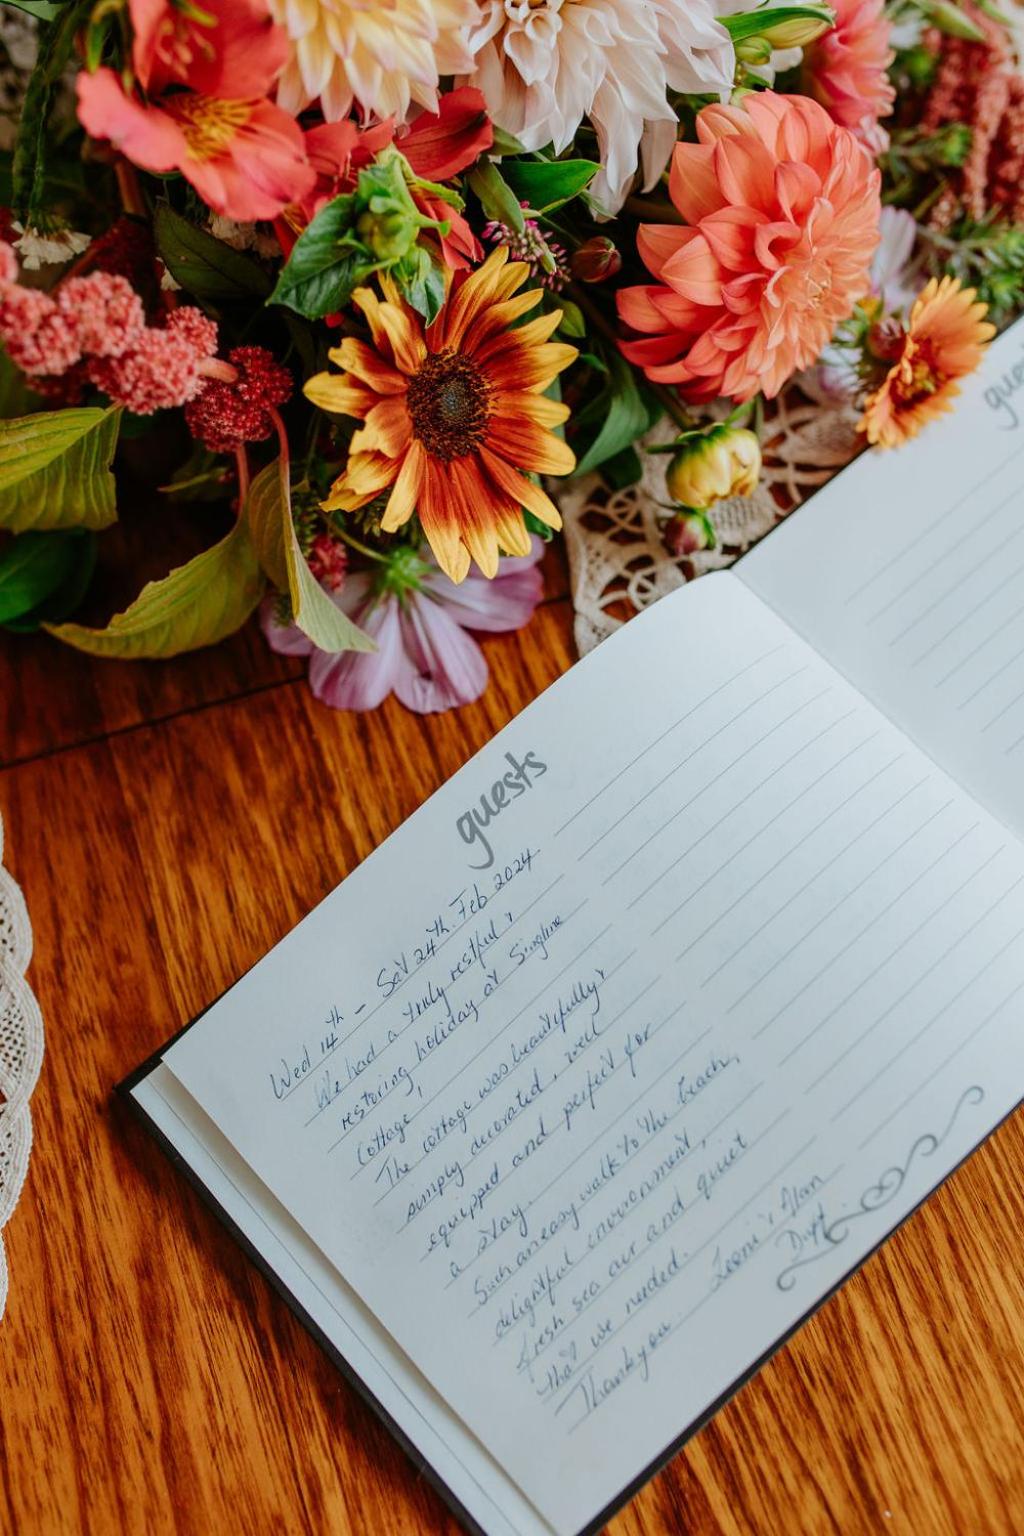 guests
Wed 14th - Sat 24th. Feb 2024
We had a truly restful &
restoring holiday at
Cottage,
The cottage was beautifully
simply decorated, well
equipped and perfect for
a stay.
Such an easy walk to the beach,
delightful environment,
fresh sea air and quiet
that we needed.
Thankyou. & Alan
gues